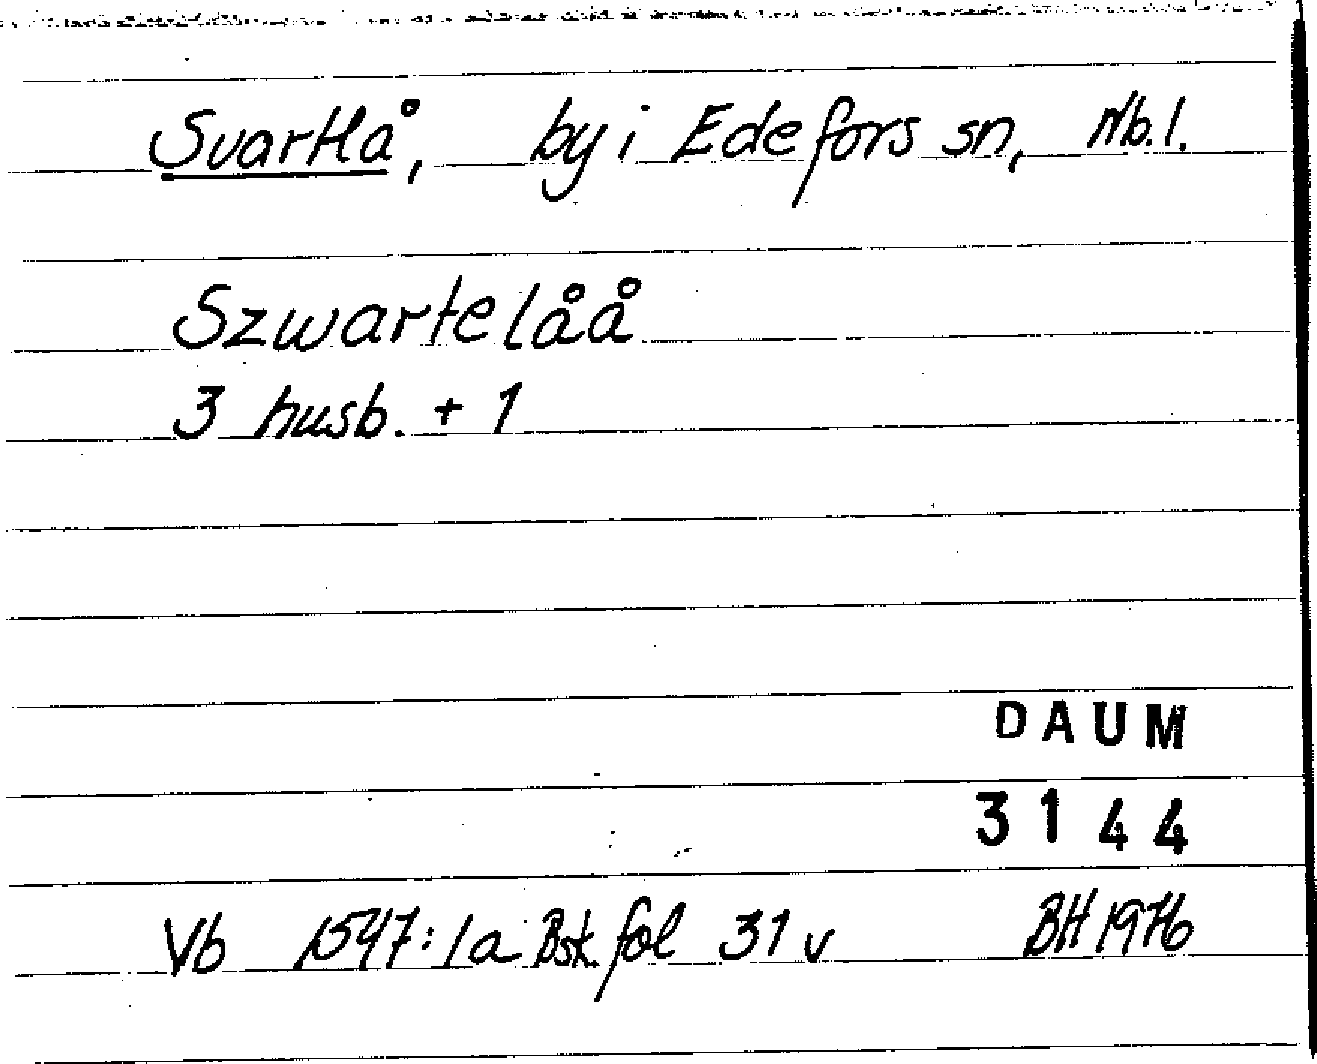 Svartlå, by i Edefors sn, Nb.l.
Szwartelåå
3 husb. + 1
DAUM
3144
Vb 1547:1a Bsk fol 31 v BH 1976